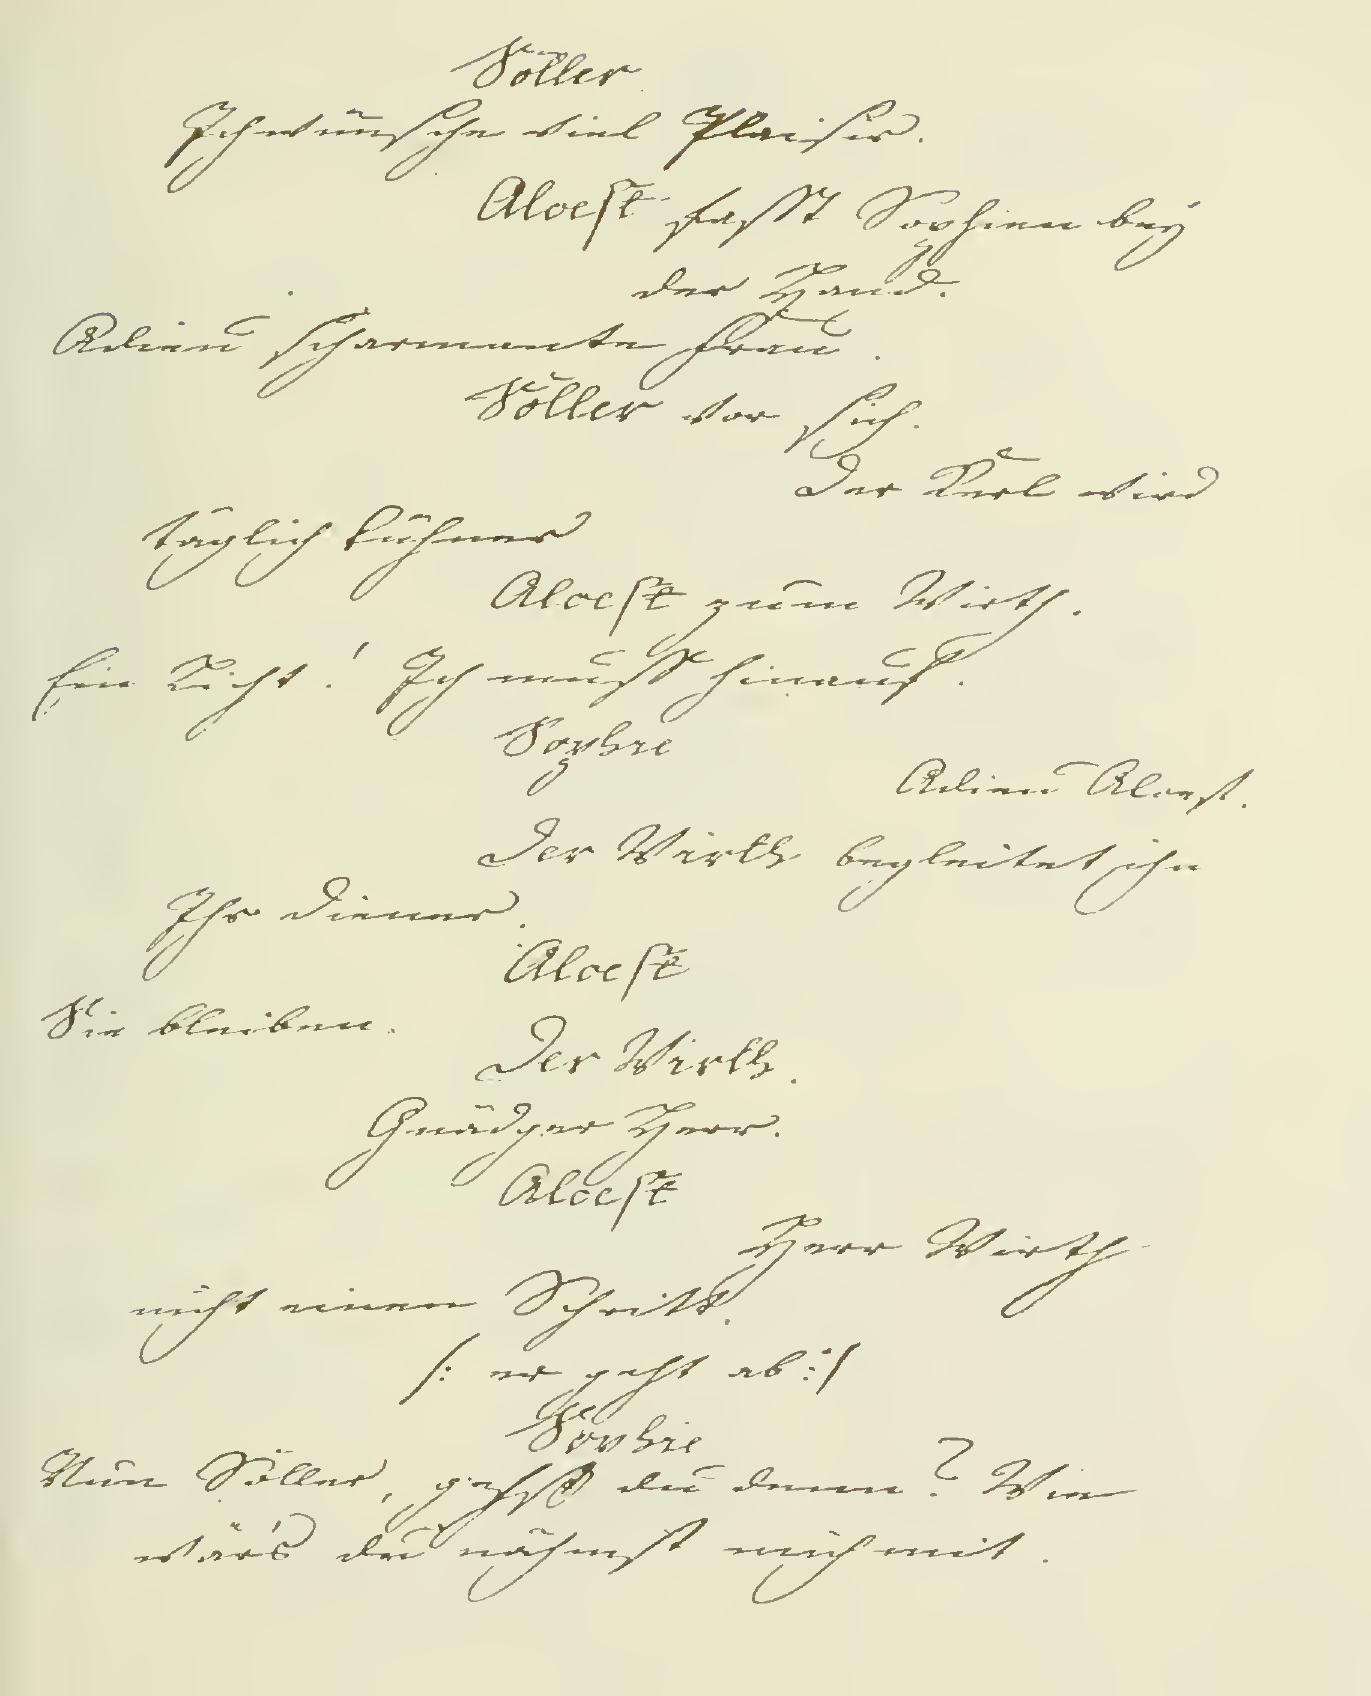 Söller.
Ich wünsche viel Plaisir.
Alcest fasst Sophien bey
der Hand.
Adieu scharmante Frau.
Söller vor sich.
Der Kerl wird
täglich kühner
Alcest zum Wirth.
Ein Licht! Ich muss hinauf.
Sophie
Adieu Alcest.
Der Wirth begleitet ihn
Ihr Diener.
Alcest
Sie bleiben.
Der Wirth.
Gnädger Herr.
Alcest
Herr Wirth
nicht einen Schritt.
/: er geht ab :/
Sophie
Nun Söller, gehst du denn? Wie
wär's du nähmst mich mit.